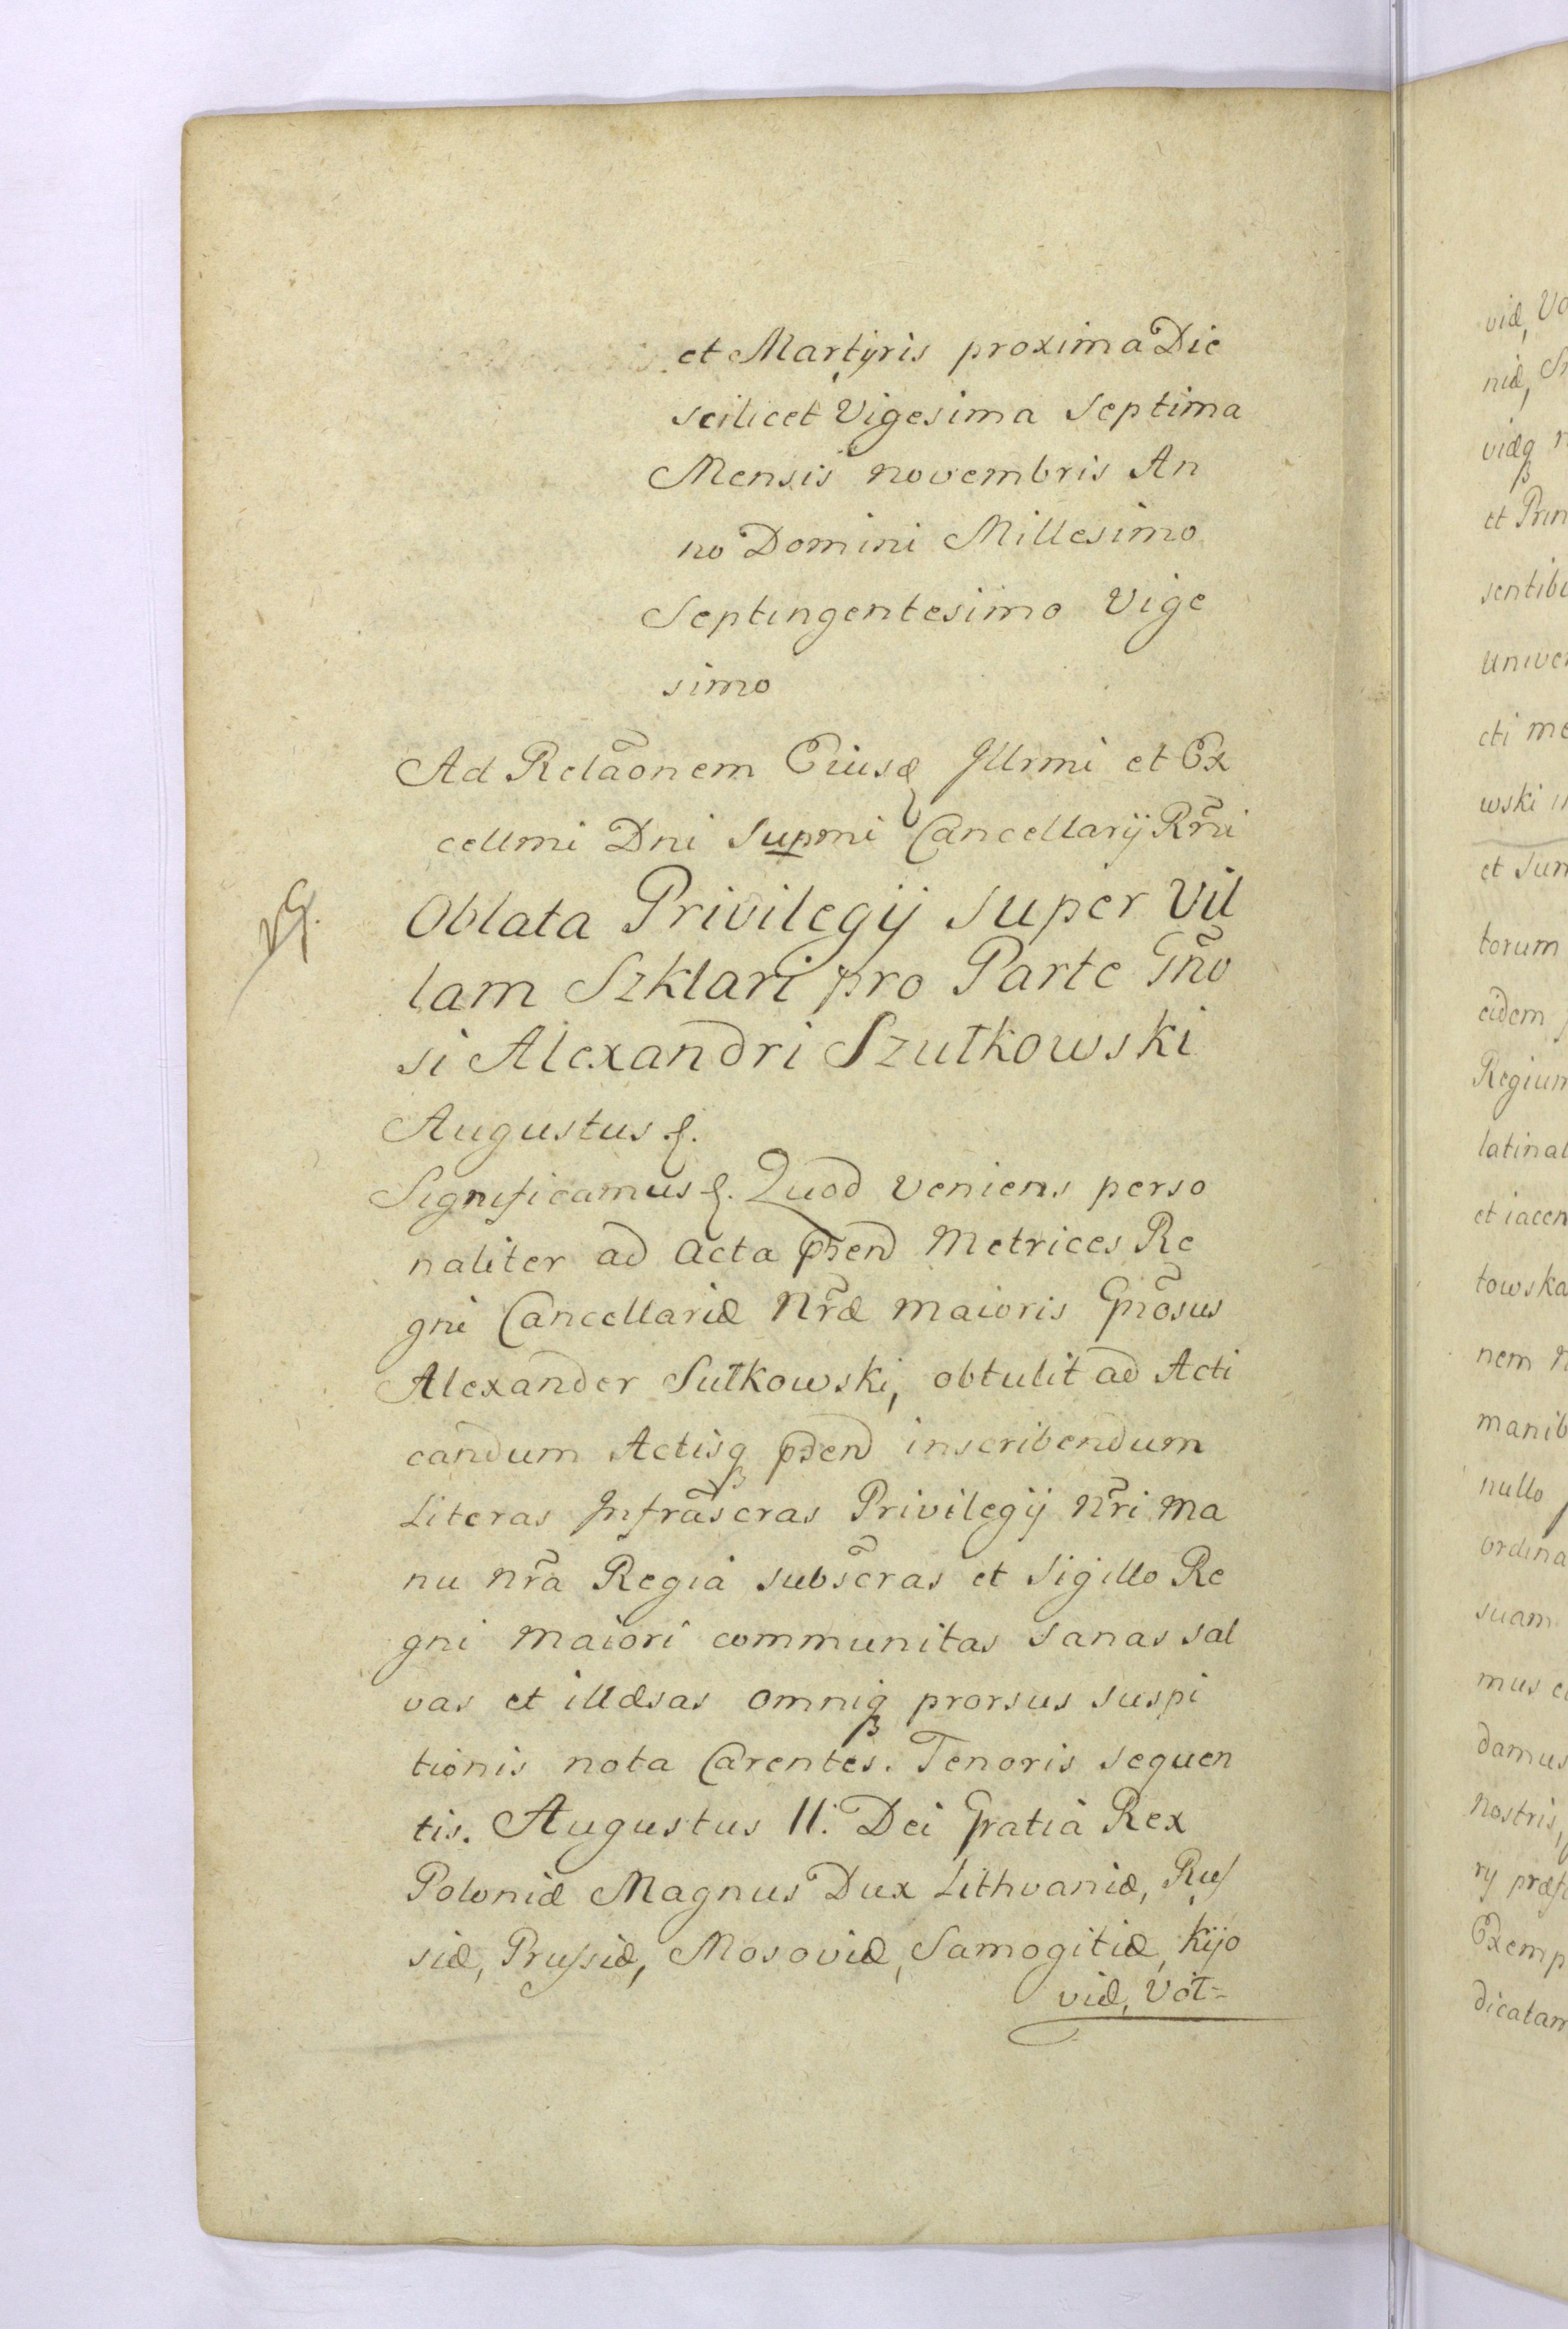 et Martyris proxima Die
scilicet Vigesima Septima
Mensis novembris An
no Domini Millesimo
Septingentesimo Vige
simo
Ad Relãonem Eiusd Illrmi et Ex
cellmi Dni Supmi Cancellarij Rñi
Oblata Privilegij super Vil
lam Szklari pro Parte Gño
si Alexandri Szułkowski
Augustus &.
Significamus &. Quod veniens perso
naliter ad Acta phend Metrices Re
gni Cancellariæ Nr̃æ maioris Gñosus
Alexander Sułkowski, obtulit ad Acti
candum Actisq pdend inscribendum
Literas Infrãscras Privilegij Nr̃i ma
nu nr̃a Regiâ subsc̃ras et Sigillo Re
gni maiori communitas sanas sal
vas et illæsas omniq prorsus suspi
tionis nota Carentes. Tenoris sequen
tis. Augustus II. Dei Gratiâ Rex
Poloniæ Magnus Dux Lithvaniæ, Rus
siæ, Prussiæ, Mosoviæ, Samogitiæ, Kijo
viæ, Voł=
viæ, Vo
niæ,
viæq
et Prin
sentibu
univer
cti me
wski
et Sum
torum
eidem
Regium
latinat
et iacen
towska
nem
manib
nullo
ordina
suam
mus
damus
nostris,
rij præf
Exemp
dicatam